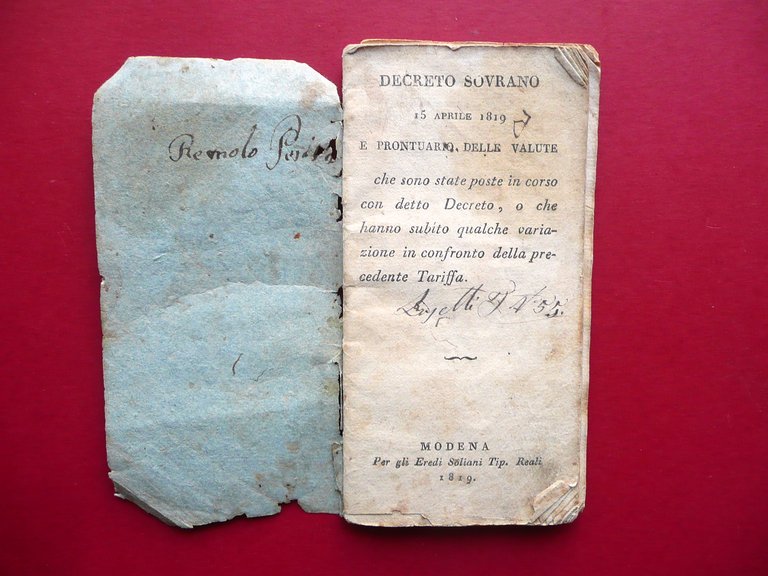 Remolo
DECRETO SOVRANO
15 APRILE 1819
E PRONTUARIO DELLE VALUTE
che sono state poste in corso
con detto Decreto, o che
hanno subito qualche varia-
zione in confronto della pre-
cedente Tariffa.
N.° 55.
MODENA
Per gli Eredi Soliani Tip. Reali
1819.